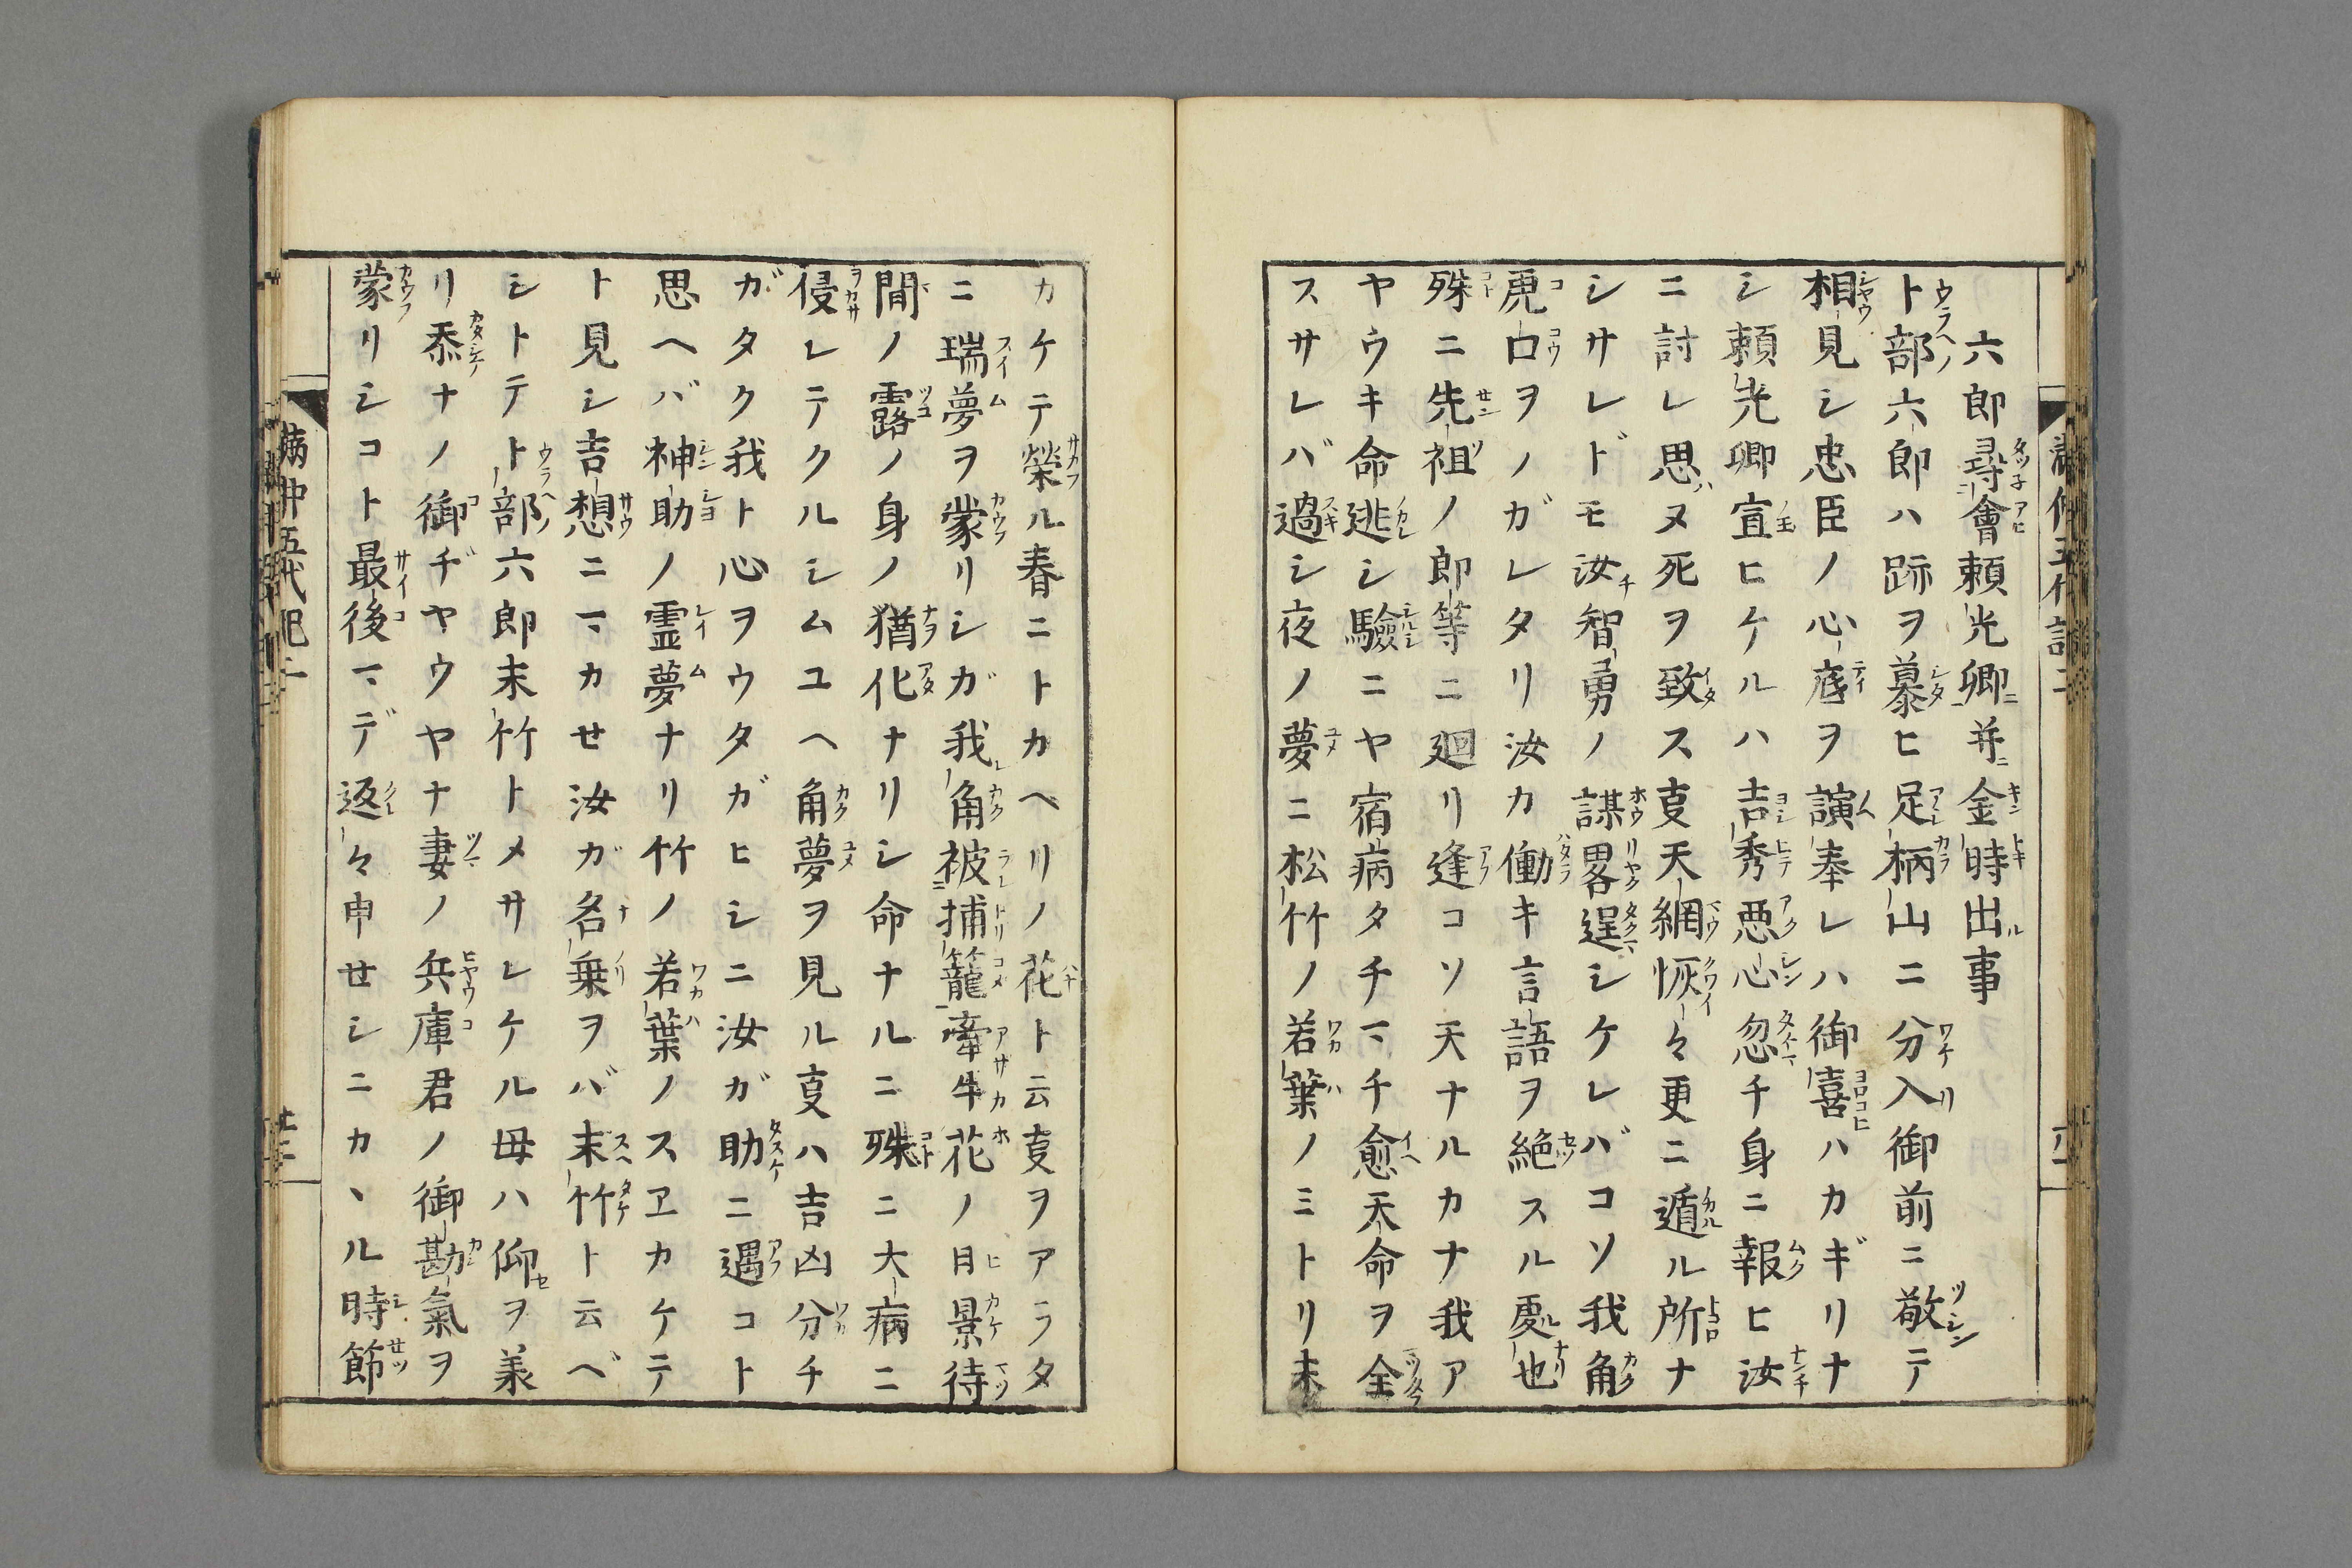 六郎尋會頼光卿并金時出事
ト部六郎ハ跡ヲ慕ヒ足柄山ニ分入御前ニ敬テ
相見シ忠臣ノ心底ヲ演奉レハ御喜ハカギリナ
シ頼光卿宣ヒケルハ吉秀悪心忽チ身ニ報ヒ汝
ニ討レ思ヌ死ヲ致ス㕝天網恢々更ニ遁ル所ナ
シサレドモ汝智勇ノ謀畧逞シケレバコソ我角
虎口ヲノガレタリ汝カ働キ言語ヲ絶スル處也
殊ニ先祖ノ郎等ニ廻リ逢コソ天ナルカナ我ア
ヤウキ命逃シ驗ニヤ宿病タチマチ愈天命ヲ全
スサレバ過シ夜ノ夢ニ松竹ノ若葉ノミトリ末
カケテ榮ル春ニトカヘリノ花ト云㕝ヲアラタ
ニ瑞夢ヲ蒙リシガ我角被捕籠牽牛花ノ日景待
間ノ露ノ身ノ猶化ナリシ命ナルニ殊ニ大病ニ
侵レテクルシムユヘ角夢ヲ見ル㕝ハ吉凶分チ
ガタク我ト心ヲウタガヒシニ汝ガ助ニ遇コト
思ヘバ神助ノ霊夢ナリ竹ノ若葉ノスヱカケテ
ト見シ吉想ニマカせ汝ガ名乗ヲバ末竹ト云ベ
シトテト部六郎末竹トメサレケル母ハ仰ヲ美
リ忝ナノ御ヂヤウヤナ妻ノ兵庫君ノ御勘氣ヲ
蒙リシコト最後マデ返々申せシニカヽル時節
満仲五代記二